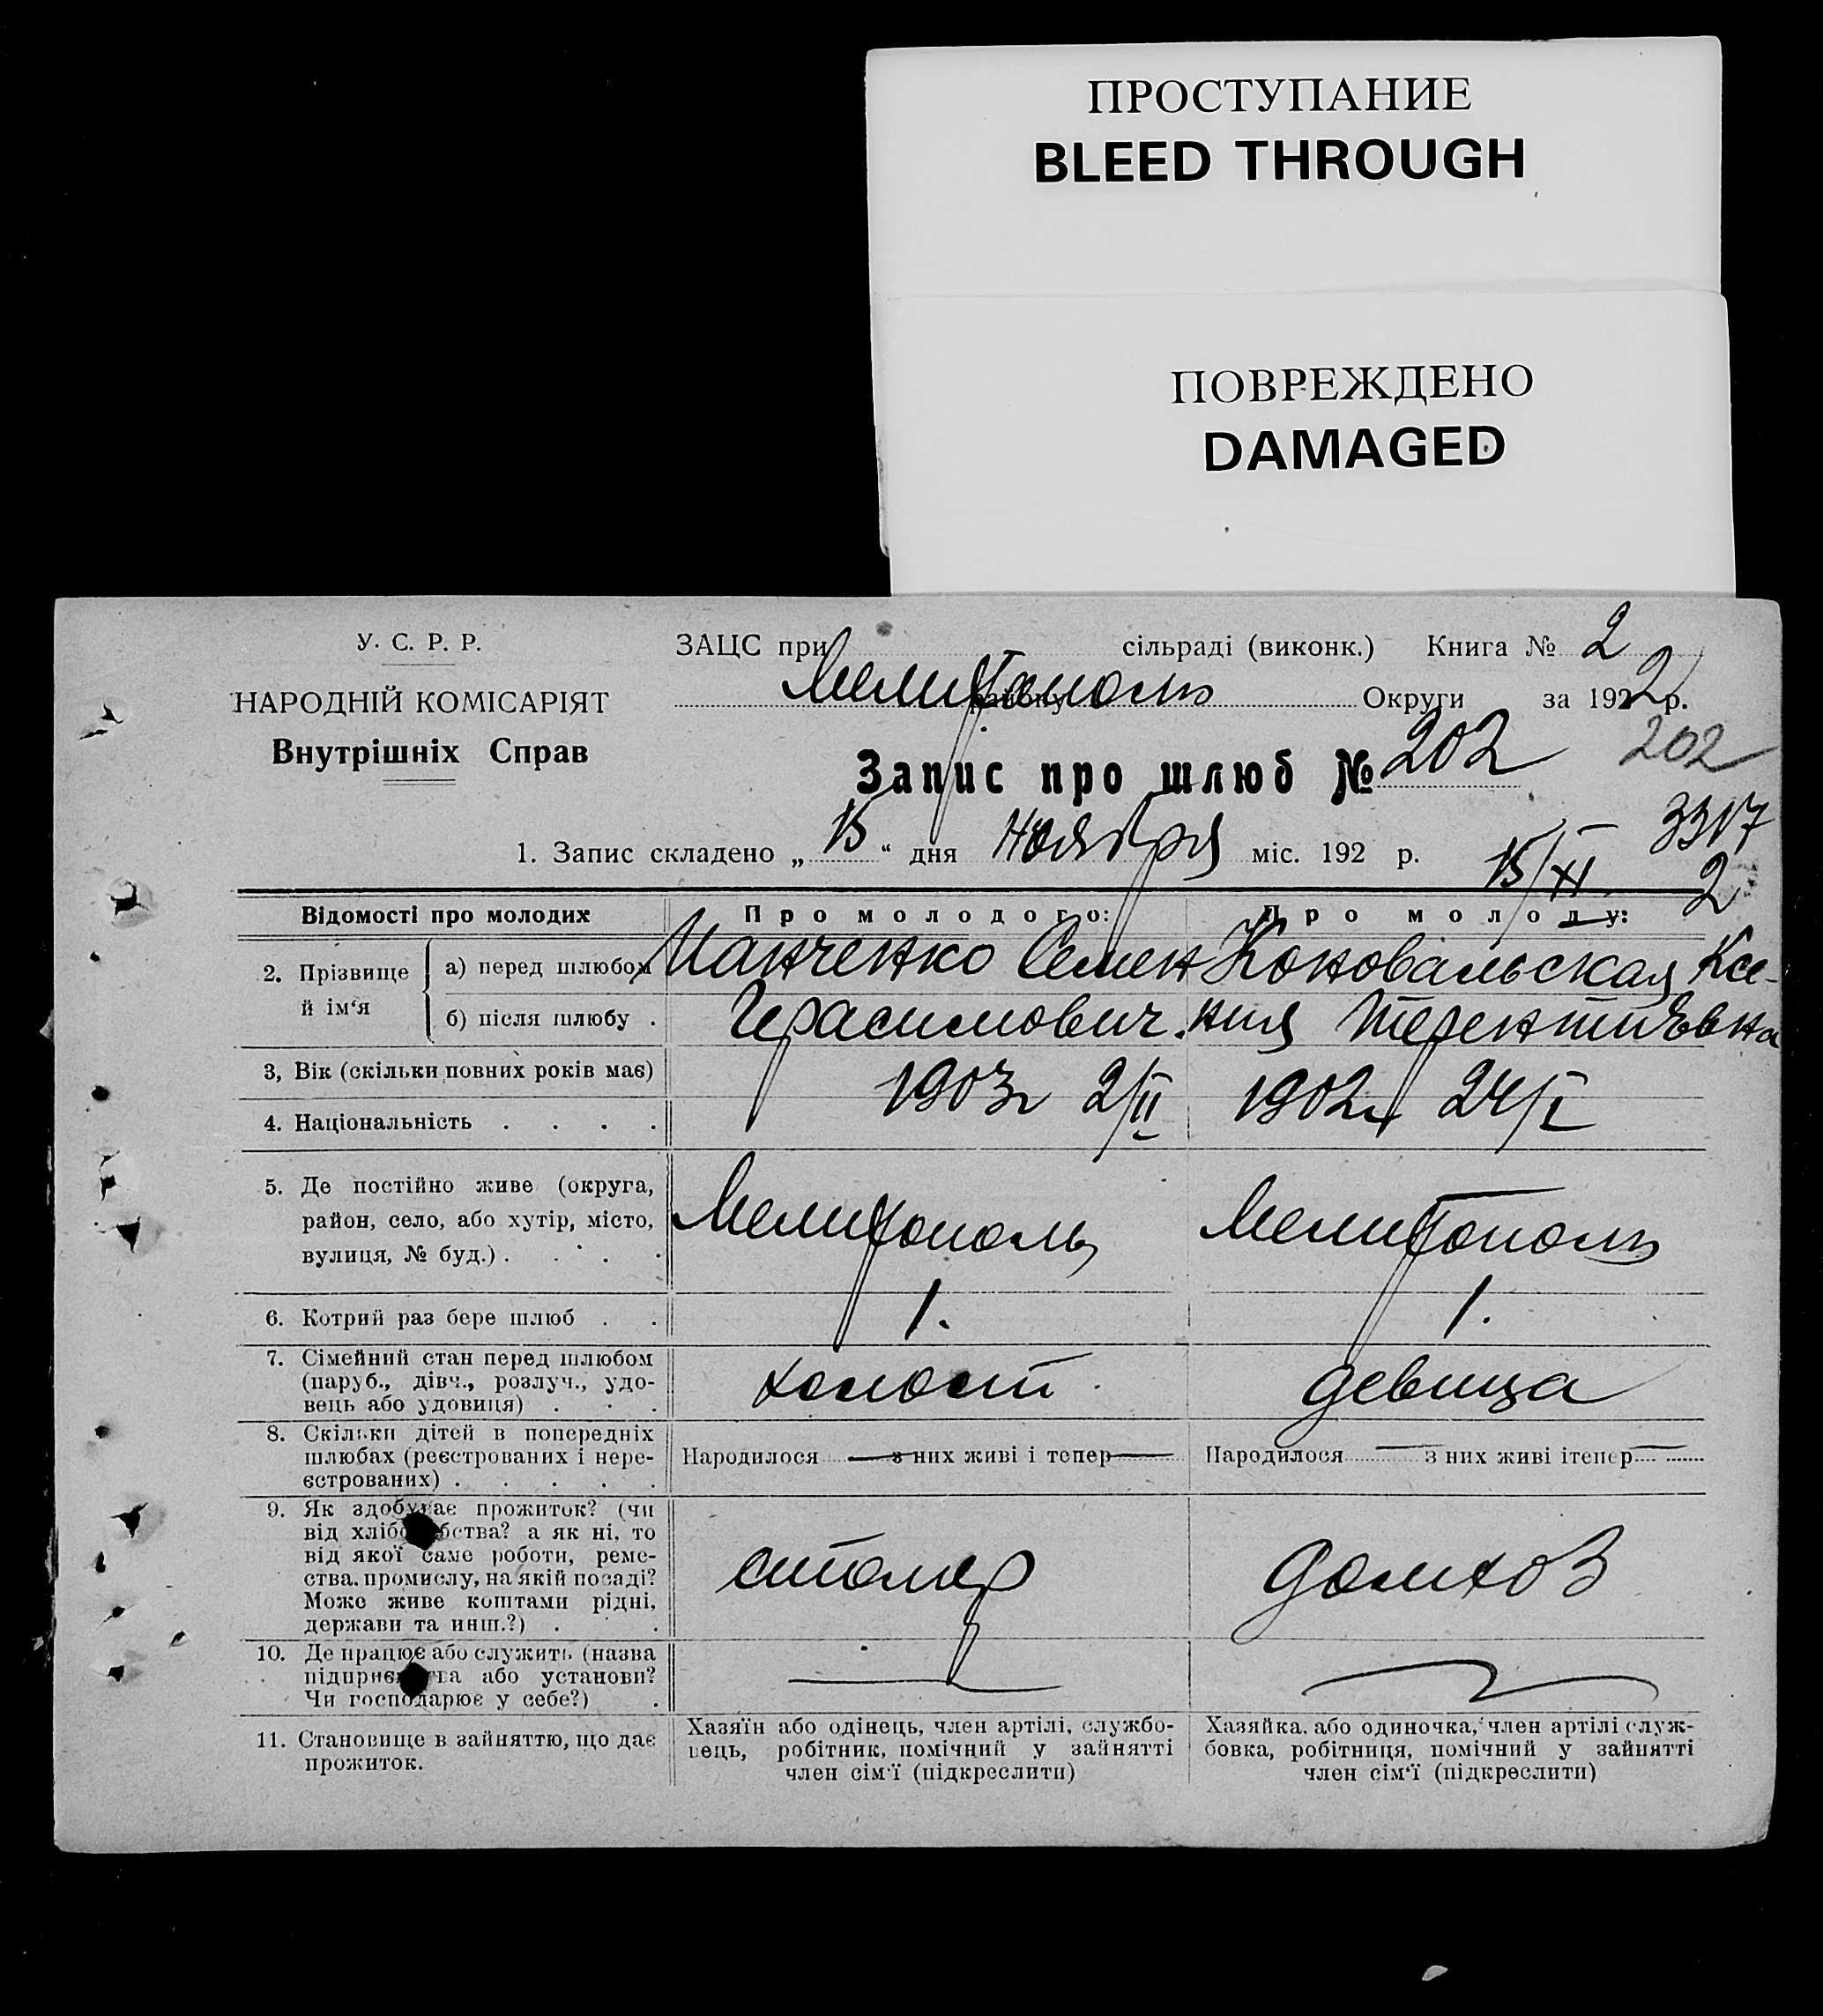 ПРОСТУПАНИЕ
BLEED THROUGH
ПОВРЕЖДЕНО
DAMAGED
У. С. Р. Р.
НАРОДНІЙ КОМІСАРІЯТ
Внутрішніх Справ
ЗАЦС при сільраді (виконк.) Книга № 2
Мелитополь району Округи за 1922 р.
Запис про шлюб № 202 202
3317
1. Запис складено „15“ дня Ноября міс. 192 р. 15/XI 2
Відомості про молодих Про молодого: Про молоду:
2. Прізвище й ім'я
а) перед шлюбом Семен Коновальская Ксе-
б) після шлюбу . Герасимович. ния Терентиевна
3, Вік (скільки повних років має) 1903г 2/II 1902г 24/I
4. Національність . . . .
5. Де постійно живе (округа,
район, село, або хутір, місто,
вулиця, № буд.) . . . .
Мелитополь Мелитополь
6. Котрий раз бере шлюб . . 1. 1.
7. Сімейний стан перед шлюбом
(паруб., дівч., розлуч., удо-
вець або удовиця) . . .
холост девица
8. Скільки дітей в попередніх
шлюбах (реєстрованих і нере-
єстрованих) . . . . .
Народилося — з них живі і тепер — Народилося — з них живі ітепер —
9. Як здобуває прожиток? (чи
від хліб бства? а як ні, то
від якої саме роботи, реме-
ства, промислу, на якій посаді?
Може живе коштами рідні,
держави та инш.?) . .
столяр домхоз
10. Де працює або служить (назва
підприє тва або установи?
Чи господарює у себе?) .
— —
11. Становище в зайняттю, що дає
прожиток.
Хазяїн або одінець, член артілі, службо-
вець, робітник, помічний у зайнятті
член сім'ї (підкреслити)
Хазяйка, або одиночка, член артілі служ-
бовка, робітниця, помічний у зайнятті
член сім'ї (підкреслити)